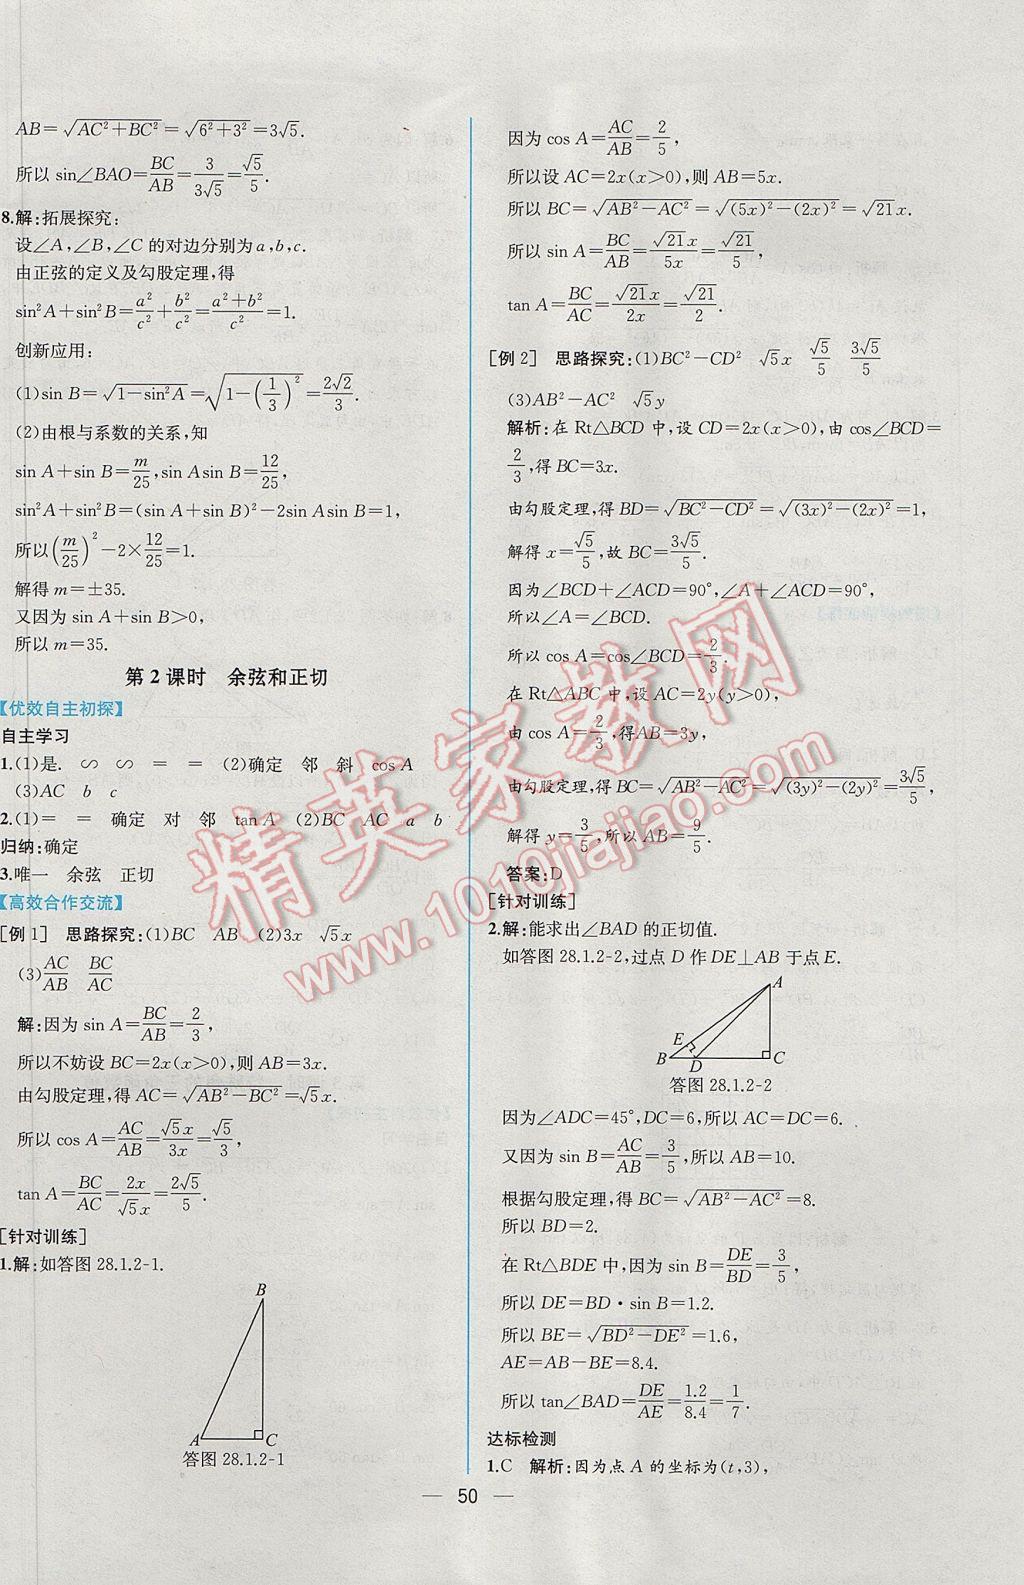 AB=√(AC²+BC²)=√(6²+3²)=3√5.
所以 sin∠BAO=BC/AB=3/(3√5)=√5/5.
8.解:拓展探究:
设∠A,∠B,∠C 的对边分别为 a,b,c.
由正弦的定义及勾股定理,得
sin²A+sin²B=a²/c²+b²/c²=(a²+b²)/c²=1.
创新应用:
(1)sin B=√(1-sin²A)=√(1-(1/3)²)=2√2/3.
(2)由根与系数的关系,知
sin A+sin B=m/25,sin Asin B=12/25,
sin²A+sin²B=(sin A+sin B)²-2sin Asin B=1,
所以(m/25)²-2×12/25=1.
解得 m=±35.
又因为 sin A+sin B>0,
所以 m=35.
第 2 课时 余弦和正切
【优效自主初探】
自主学习
1.(1)是. ∽ ∽ = = (2)确定 邻 斜 cos A
(3)AC b c
2.(1)= = 确定 对 邻 tan A (2)BC AC a b
归纳:确定
3.唯一 余弦 正切
【高效合作交流】
[例 1] 思路探究:(1)BC AB (2)3x √5x
(3)AC/AB BC/AC
解:因为 sin A=BC/AB=2/3,
所以不妨设 BC=2x(x>0),则 AB=3x.
由勾股定理,得 AC=√(AB²-BC²)=√5x.
所以 cos A=AC/AB=√5x/3x=√5/3,
tan A=BC/AC=2x/√5x=2√5/5.
[针对训练]
1.解:如答图 28.1.2-1.
B
A C
答图 28.1.2-1
因为 cos A=AC/AB=2/5,
所以设 AC=2x(x>0),则 AB=5x.
所以 BC=√(AB²-AC²)=√((5x)²-(2x)²)=√21x.
所以 sin A=BC/AB=√21x/5x=√21/5,
tan A=BC/AC=√21x/2x=√21/2.
[例 2] 思路探究:(1)BC²-CD² √5x √5/5 3√5/5
(3)AB²-AC² √5y
解析:在 Rt△BCD 中,设 CD=2x(x>0),由 cos∠BCD=
2/3,得 BC=3x.
由勾股定理,得 BD=√(BC²-CD²)=√((3x)²-(2x)²)=1,
解得 x=√5/5,故 BC=3√5/5.
因为∠BCD+∠ACD=90°,∠A+∠ACD=90°,
所以∠A=∠BCD.
所以 cos A=cos∠BCD=2/3.
在 Rt△ABC 中,设 AC=2y(y>0),
由 cos A=2/3,得AB=3y,
由勾股定理,得 BC=√(AB²-AC²)=√((3y)²-(2y)²)=3√5/5,
解得 y=3/5,所以 AB=9/5.
答案:D
[针对训练]
2.解:能求出∠BAD 的正切值.
如答图 28.1.2-2,过点 D 作 DE⊥AB 于点 E.
A
E
B D C
答图 28.1.2-2
因为∠ADC=45°,DC=6,所以 AC=DC=6.
又因为 sin B=AC/AB=3/5,所以 AB=10.
根据勾股定理,得 BC=√(AB²-AC²)=8.
所以 BD=2.
在 Rt△BDE 中,因为 sin B=DE/BD=3/5,
所以 DE=BD·sin B=1.2.
所以 BE=√(BD²-DE²)=1.6,
AE=AB-BE=8.4.
所以 tan∠BAD=DE/AE=1.2/8.4=1/7.
达标检测
1.C 解析:因为点 A 的坐标为(t,3),
— 50 —
精英家教网
www.1010jiajiao.com